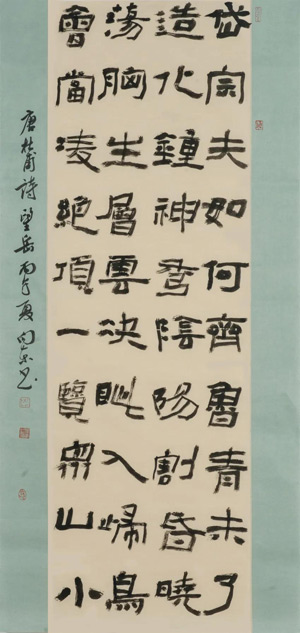 岱宗夫如何齊魯青未了
造化鍾神秀陰陽割昏曉
蕩胸生層雲決眦入歸鳥
會當凌絕頂一覽眾山小
唐杜甫詩望岳丙午夏